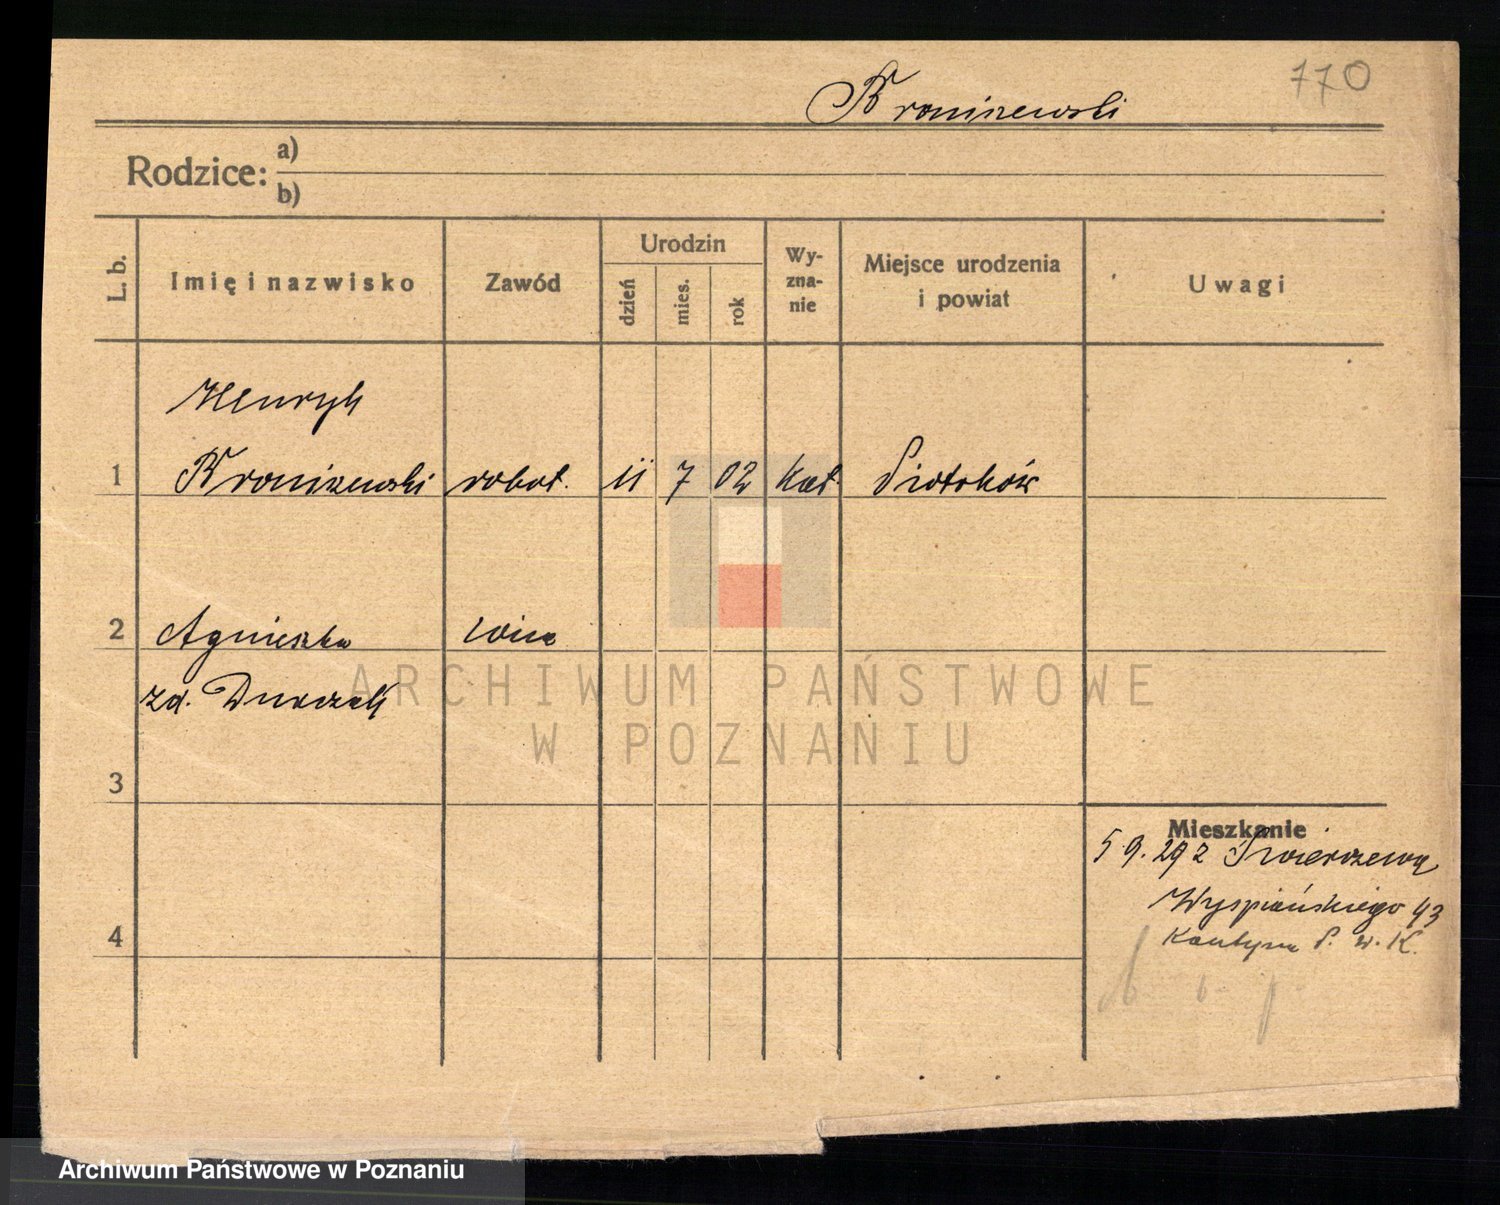 770
Broniszewski
Rodzice: a)
b)
L. b.
Imię i nazwisko
Zawód
Urodzin
dzień
mies.
rok
Wy-
zna-
nie
Miejsce urodzenia
i powiat
Uwagi
Henryk
1 Broniszewski robot. 11 7 02 kat Piotrków
2 Agnieszka
zd.
3
Mieszkanie
5.9.29 z
Wyspiańskiego 43
Kantyna P. w. K.
4
ARCHIWUM PAŃSTWOWE
W POZNANIU
Archiwum Państwowe w Poznaniu